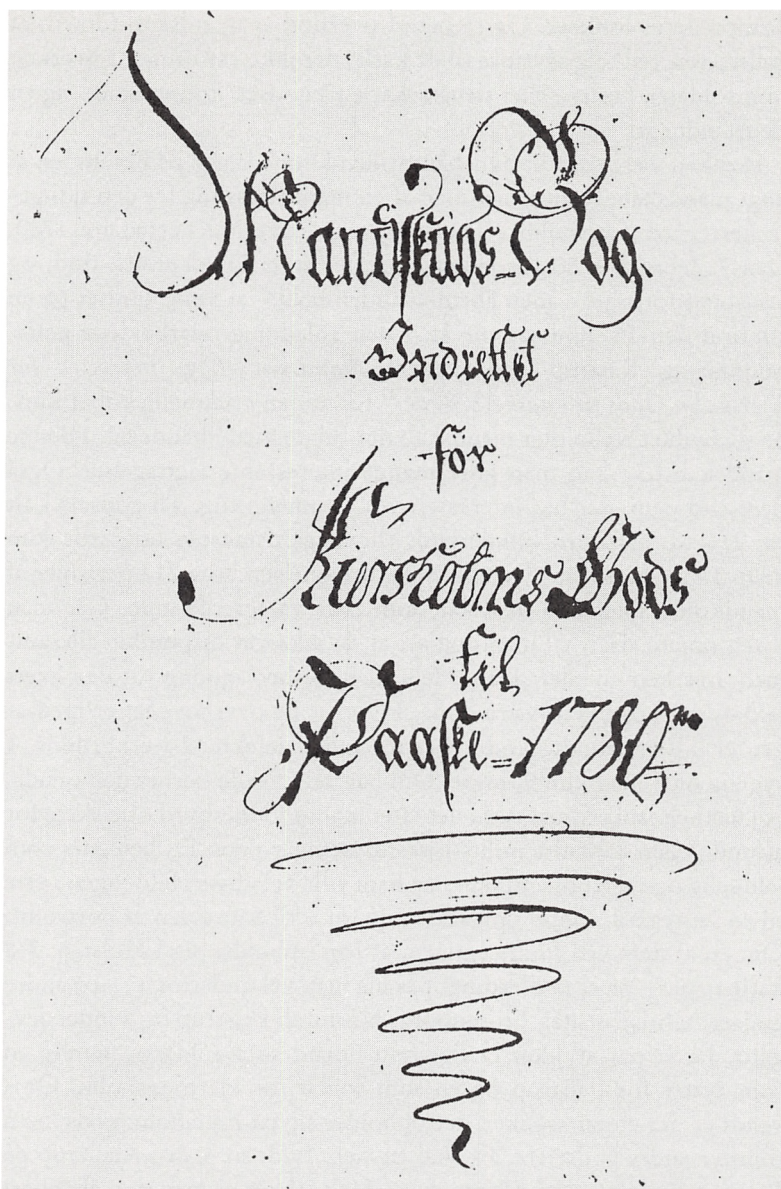 Mandskabs-Bog
Indrettet
for
Kiersholms Gods
til
Paaske-1780